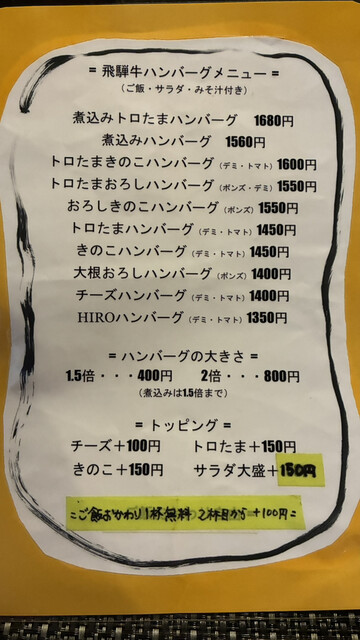 = 飛騨牛ハンバーグメニュー =
(ご飯・サラダ・みそ汁付き)
煮込みトロたまハンバーグ 1680円
煮込みハンバーグ 1560円
トロたまきのこハンバーグ (デミ・トマト) 1600円
トロたまおろしハンバーグ (ポンズ・デミ) 1550円
おろしきのこハンバーグ (ポンズ) 1550円
トロたまハンバーグ (デミ・トマト) 1450円
きのこハンバーグ (デミ・トマト) 1450円
大根おろしハンバーグ (ポンズ) 1400円
チーズハンバーグ (デミ・トマト) 1400円
HIROハンバーグ (デミ・トマト) 1350円
= ハンバーグの大きさ =
1.5倍・・・400円 2倍・・・800円
(煮込みは1.5倍まで)
= トッピング =
チーズ+100円 トロたま+150円
きのこ+150円 サラダ大盛+150円
=ご飯おかわり1杯無料 2杯目から +100円=